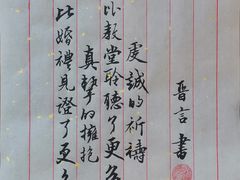 比婚禮見證了更
真摯的擁抱
比教堂聆聽了更多
虔誠的祈禱
晉言書